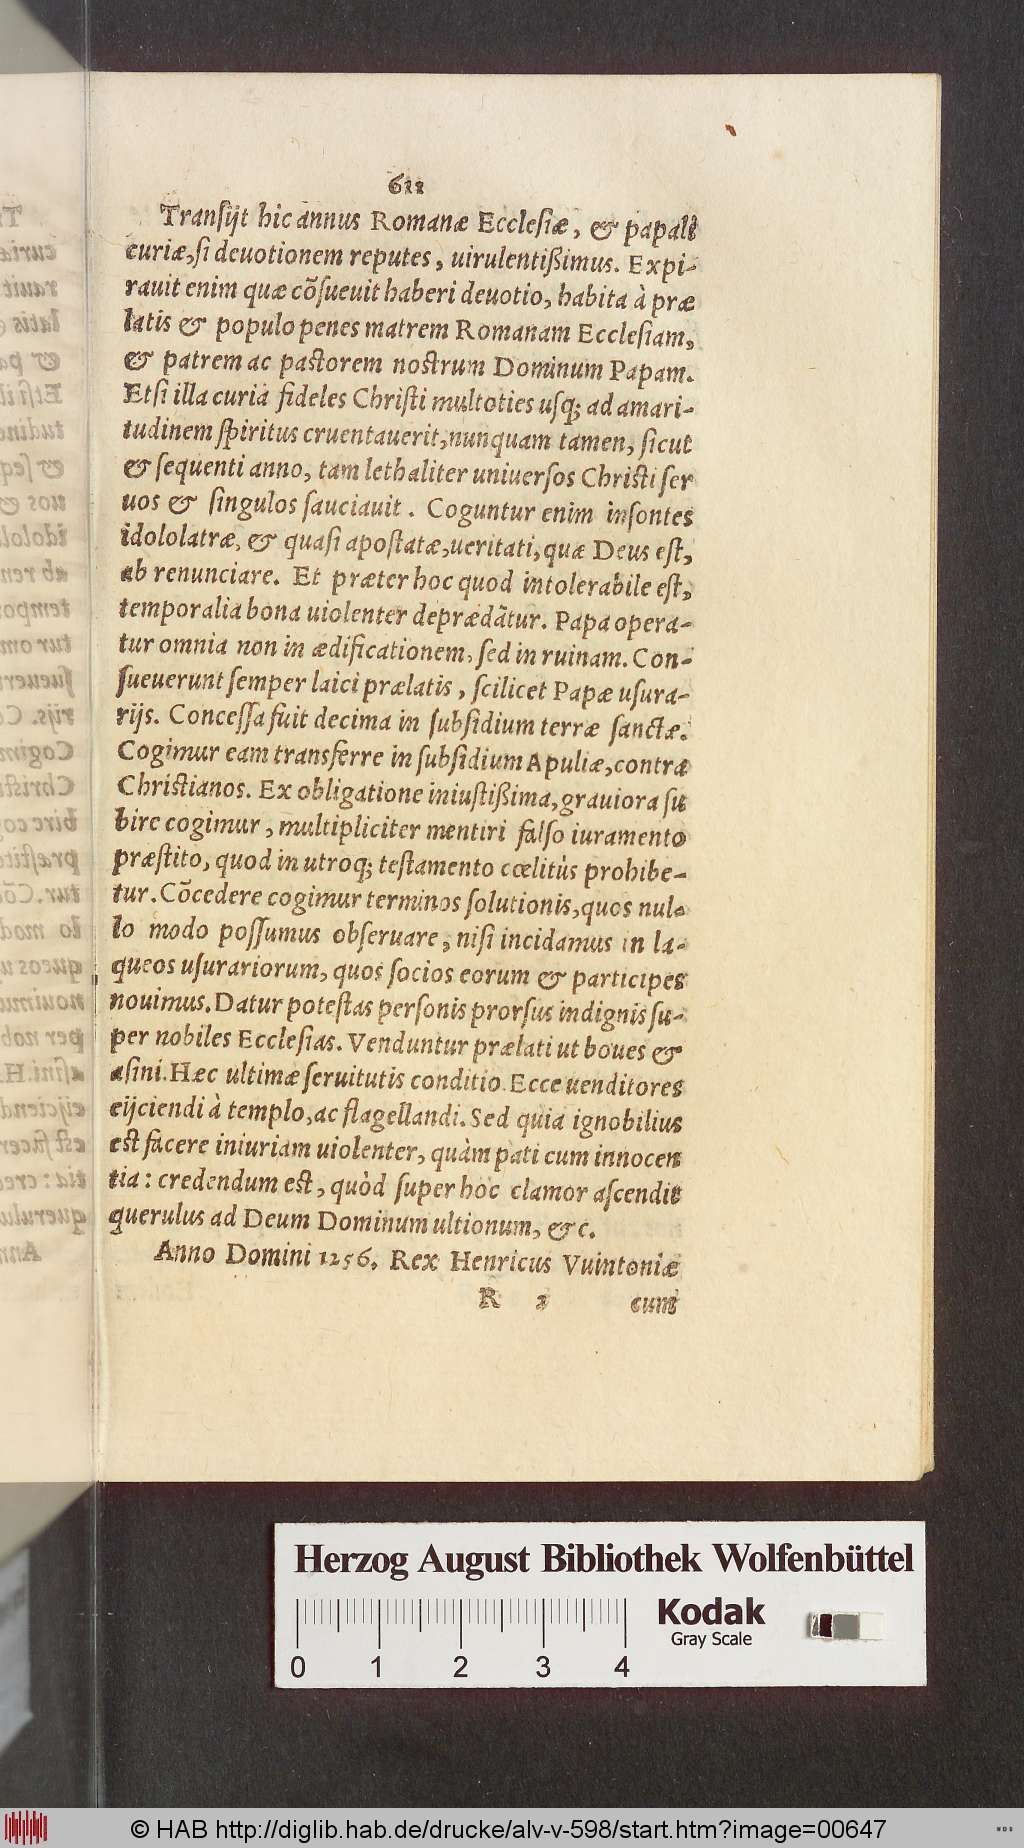 611
Tranſijt hic annus Romanæ Eccleſiæ, & papali
curiæ, ſi deuotionem reputes, uirulentißimus. Expi-
rauit enim quæ cõſueuit haberi deuotio, habita à præ
latis & populo penes matrem Romanam Eccleſiam,
& patrem ac paſtorem noſtrum Dominum Papam.
Etſi illa curia fideles Chriſti multoties uſq; ad amari-
tudinem ſpiritus cruentauerit, nunquam tamen, ſicut
& ſequenti anno, tam lethaliter uniuerſos Chriſti ſer
uos & ſingulos ſauciauit. Coguntur enim inſontes
idololatræ, & quaſi apoſtatæ, ueritati, quæ Deus eſt,
ab renunciare. Et præter hoc quod intolerabile eſt,
temporalia bona uiolenter deprædãtur. Papa opera-
tur omnia non in ædificationem, ſed in ruinam. Con-
ſueuerunt ſemper laici prælatis, ſcilicet Papæ uſura-
rijs. Conceſſa fuit decima in ſubſidium terræ ſanctæ.
Cogimur eam transferre in ſubſidium Apuliæ, contra
Chriſtianos. Ex obligatione iniuſtißima, grauiora ſu
bire cogimur, multipliciter mentiri falſo iuramento
præſtito, quod in utroq; teſtamento cœlitùs prohibe-
tur. Cõcedere cogimur terminos ſolutionis, quos nul-
lo modo poſſumus obſeruare, niſi incidamus in la-
queos uſurariorum, quos ſocios eorum & participes
nouimus. Datur poteſtas perſonis prorſus indignis ſu-
per nobiles Eccleſias. Venduntur prælati ut boues &
aſini. Hæc ultimæ ſeruitutis conditio. Ecce uenditores
eijciendi à templo, ac flagellandi. Sed quia ignobilius
eſt facere iniuriam uiolenter, quàm pati cum innocen
tia: credendum eſt, quòd ſuper hoc clamor aſcendit
querulus ad Deum Dominum ultionum, &c.
Anno Domini 1256. Rex Henricus Vuintoniæ
R 2 cum
Herzog August Bibliothek Wolfenbüttel
Kodak
Gray Scale
0 1 2 3 4
© HAB http://diglib.hab.de/drucke/alv-v-598/start.htm?image=00647